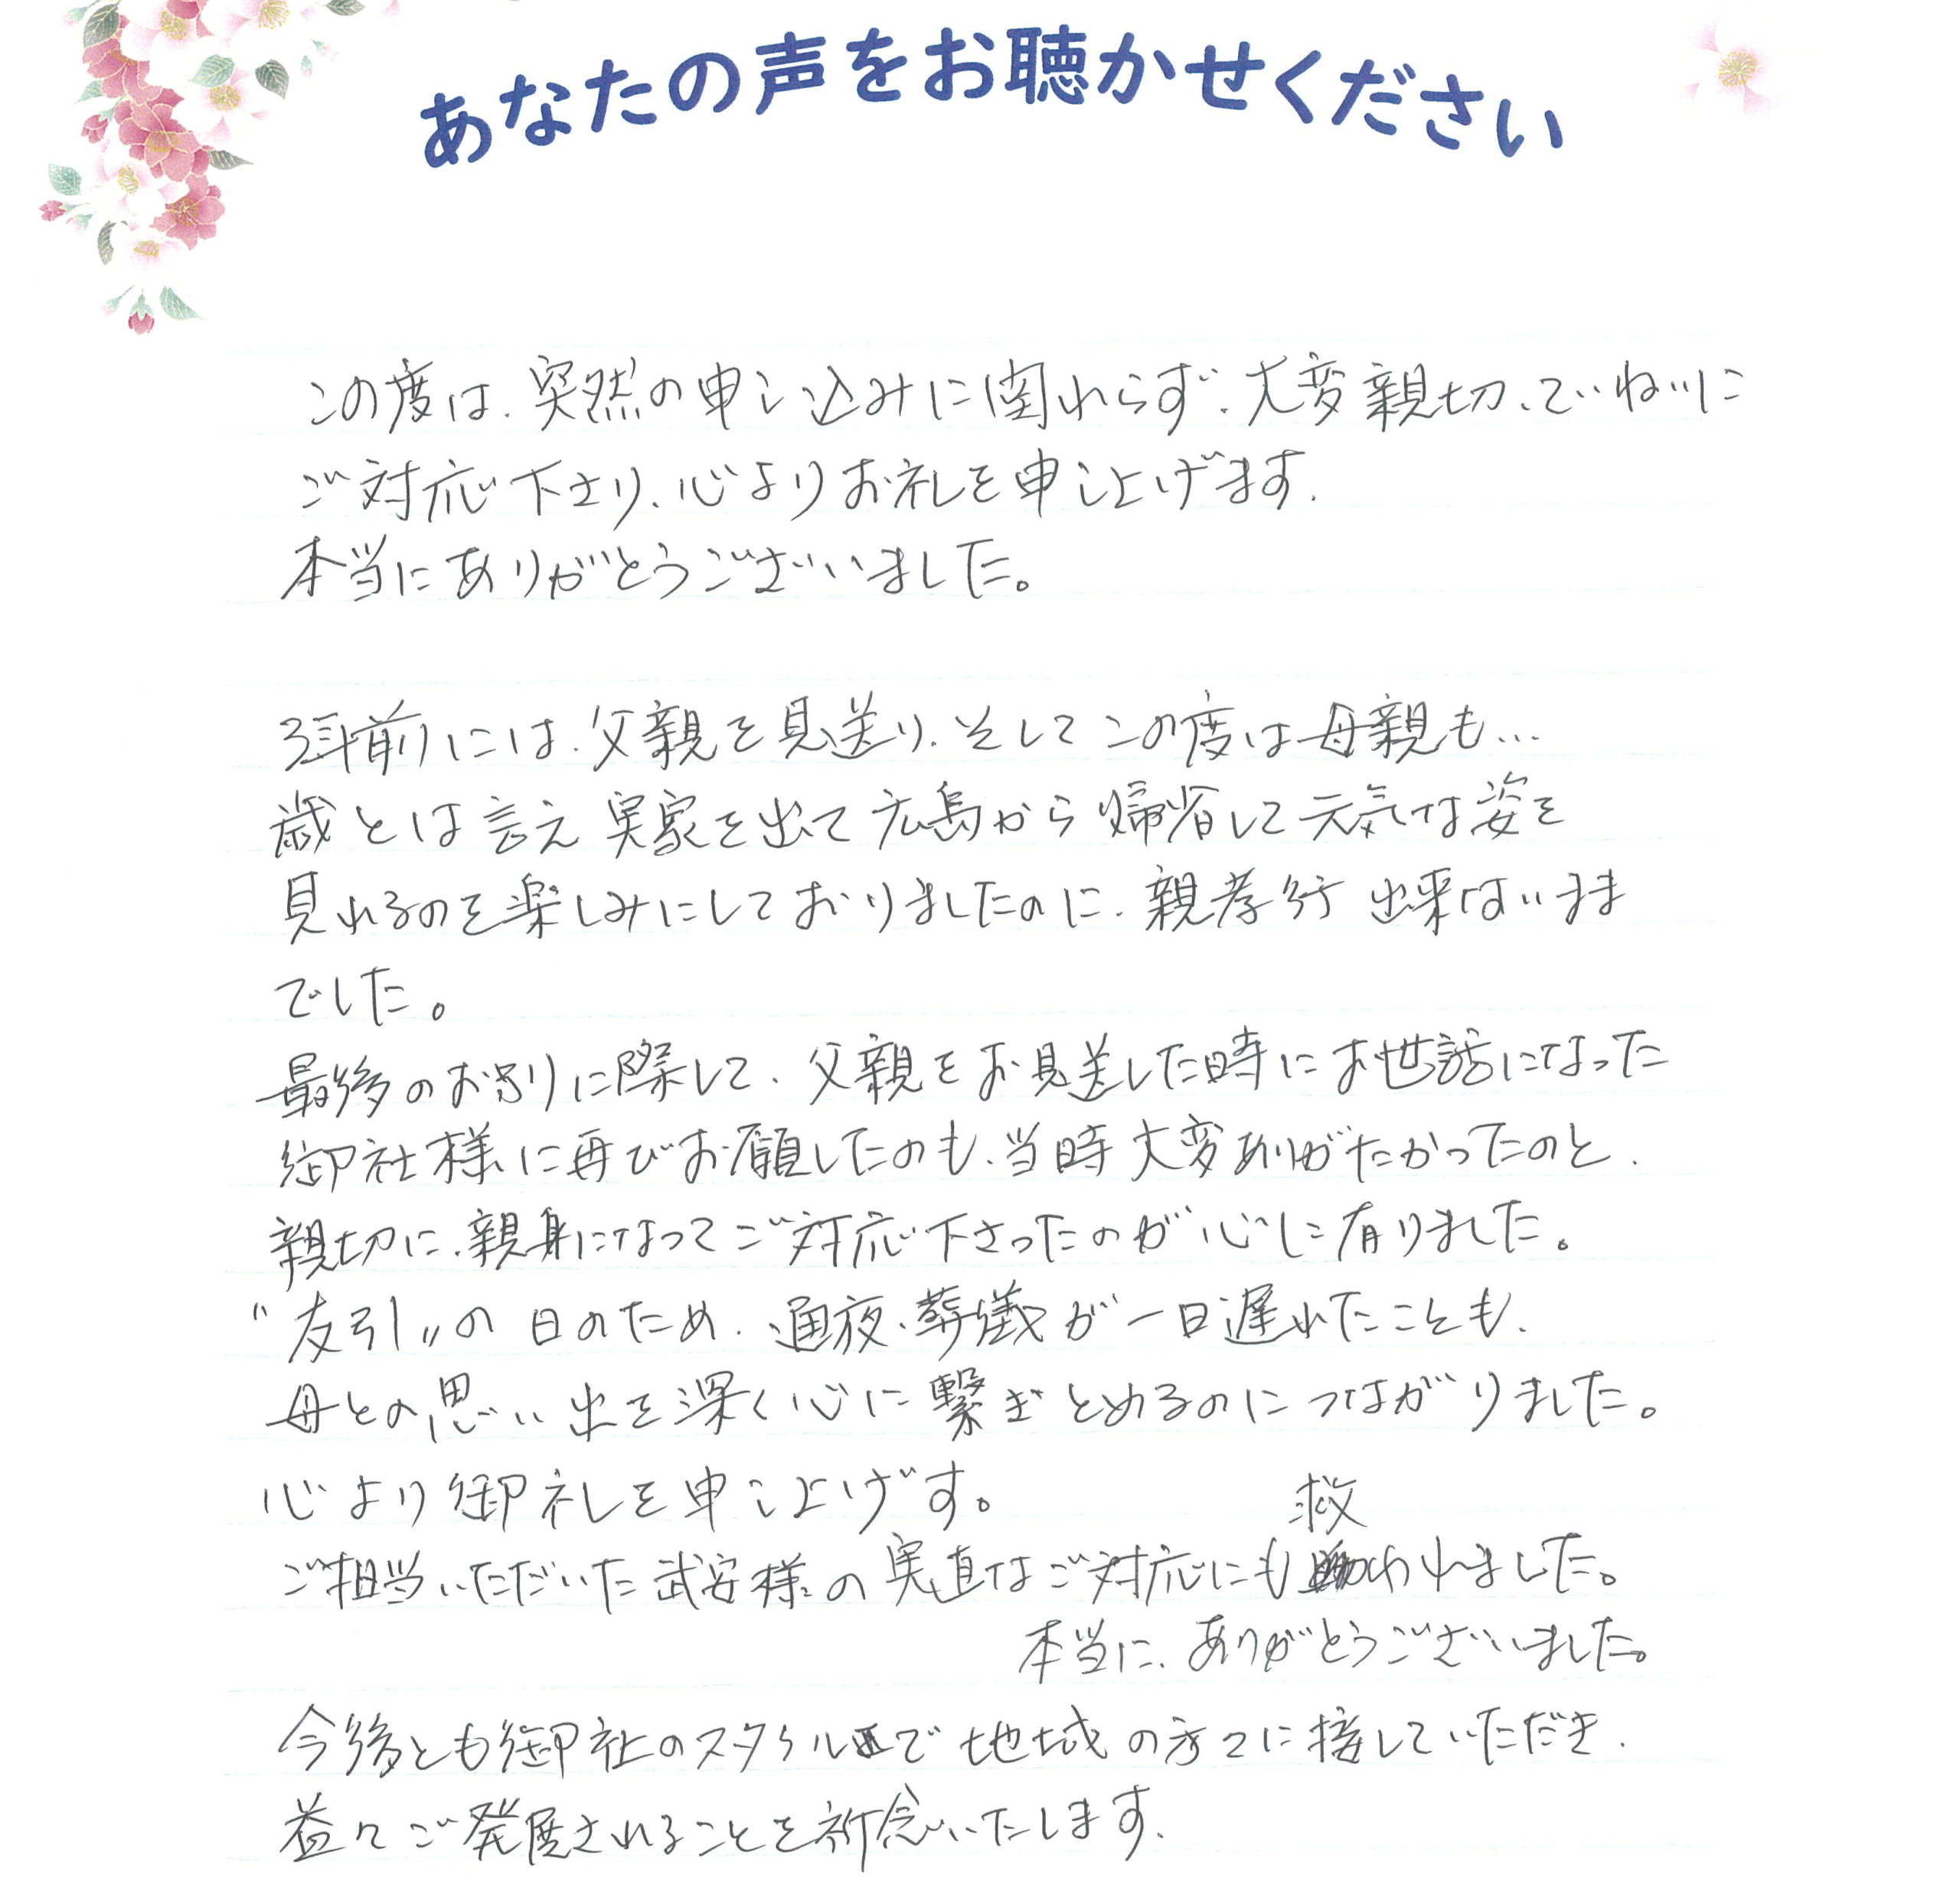 あなたの声をお聴かせください
この度は、突然の申し込みに関わらず、大変親切、ていねいに
ご対応下さり、心よりお礼を申し上げます.
本当にありがとうございました。
3年前には、父親を見送り、そしてこの度は母親も…
歳とは言え 実家を出て広島から帰省して元気な姿を
見れるのを楽しみにしておりましたのに、親孝行 出来ないまま
でした。
最後のお別りに際して、父親をお見送した時にお世話になった
御社様に再びお願したのも、当時大変ありがたかったのと、
親切に、親身になってご対応下さったのが心に有りました。
"友引"の日のため、通夜、葬儀が一日遅れたことも、
母との思い出を深く心に繋ぎとめるのにつながりました。
心より御礼を申し上げす。
ご担当いただいた武安様の実直なご対応にも救われました。
本当に、ありがとうございました。
今後とも御社のスタイルで地域の方々に接していただき、
益々ご発展されることを祈念いたします.